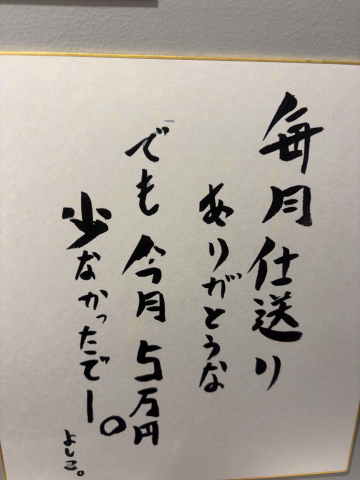 毎月仕送り
ありがとうな
でも今月5万円
少なかったでー。
よしこ。